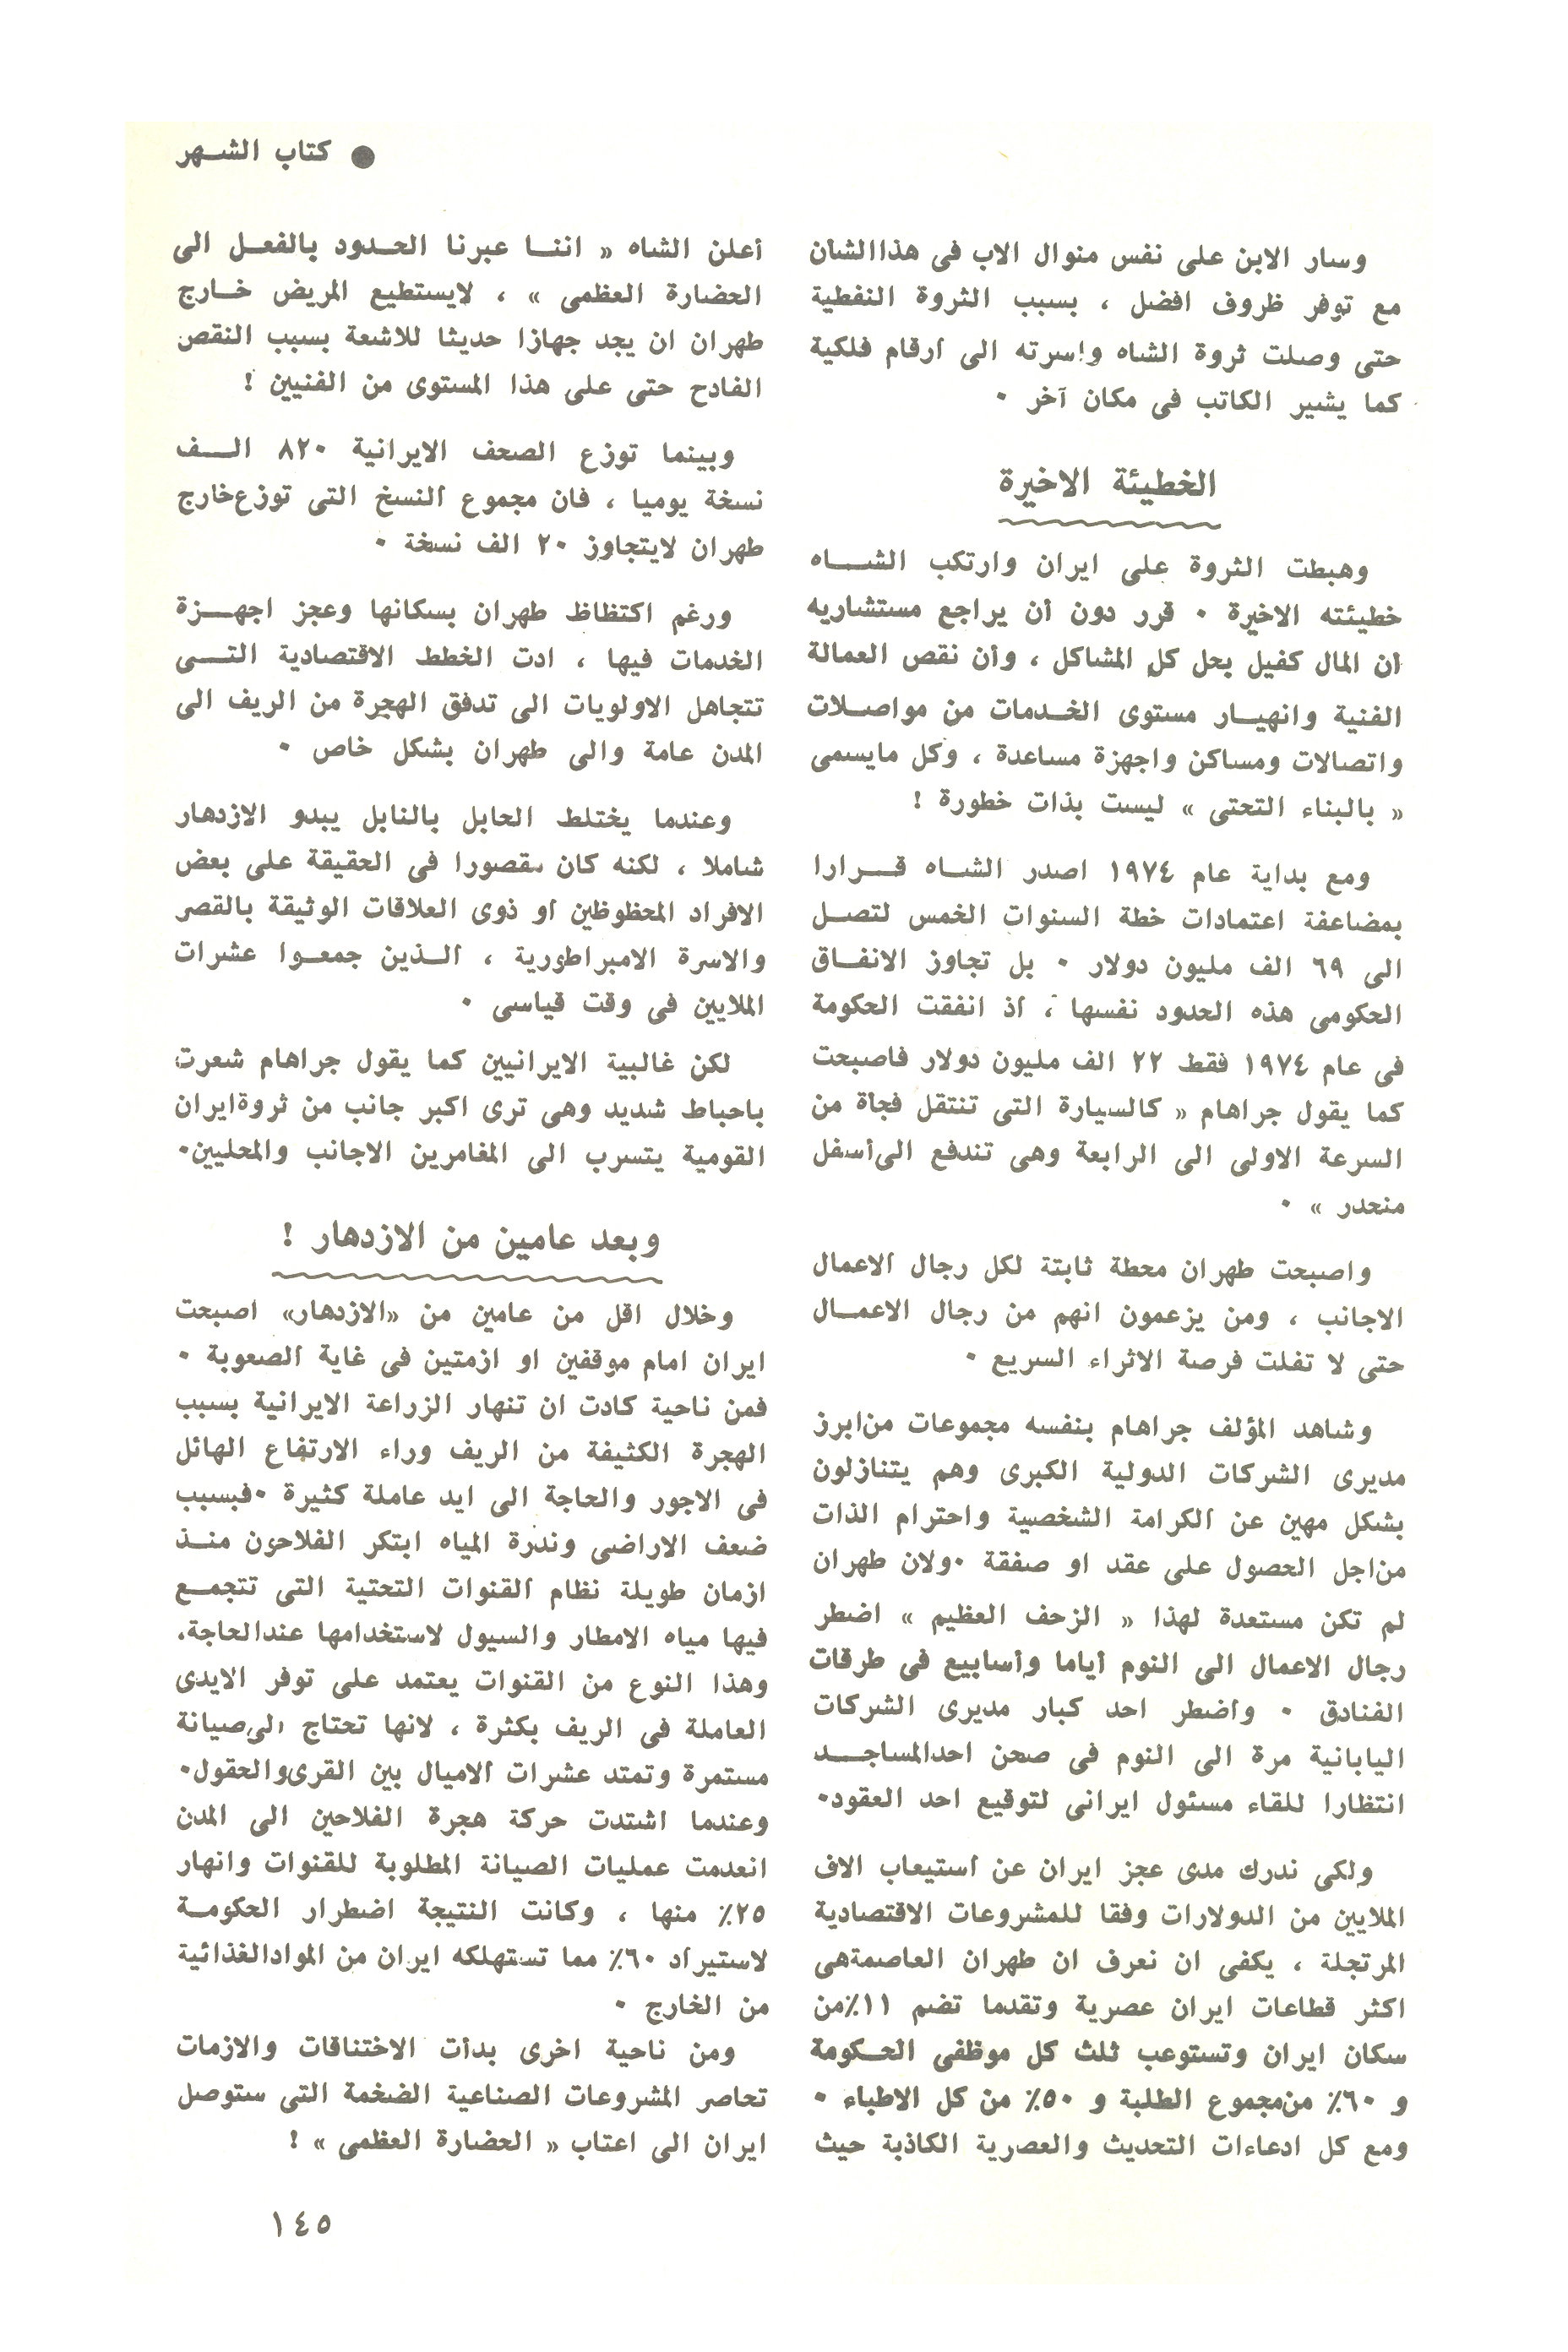 ● كتاب الشهر
وسار الابن على نفس منوال الاب فى هذا الشأن
مع توفر ظروف افضل ، بسبب الثروة النفطية
حتى وصلت ثروة الشاه واسرته الى أرقام فلكية
كما يشير الكاتب فى مكان آخر ٠
الخطيئة الاخيرة
وهبطت الثروة على ايران وارتكب الشاه
خطيئته الاخيرة ٠ قرر دون أن يراجع مستشاريه
أن المال كفيل بحل كل المشاكل ، وأن نقص العمالة
الفنية وانهيار مستوى الخدمات من مواصلات
واتصالات ومساكن واجهزة مساعدة ، وكل مايسمى
« بالبناء التحتى » ليست بذات خطورة !
ومع بداية عام ١٩٧٤ اصدر الشاه قرارا
بمضاعفة اعتمادات خطة السنوات الخمس لتصل
الى ٦٩ الف مليون دولار ٠ بل تجاوز الانفاق
الحكومى هذه الحدود نفسها ، اذ انفقت الحكومة
فى عام ١٩٧٤ فقط ٢٢ الف مليون دولار فاصبحت
كما يقول جراهام « كالسيارة التى تنتقل فجأة من
السرعة الاولى الى الرابعة وهى تندفع الى أسفل
منحدر » ٠
واصبحت طهران محطة ثابتة لكل رجال الاعمال
الاجانب ، ومن يزعمون انهم من رجال الاعمال
حتى لا تفلت فرصة الاثراء السريع ٠
وشاهد المؤلف جراهام بنفسه مجموعات من ابرز
مديرى الشركات الدولية الكبرى وهم يتنازلون
بشكل مهين عن الكرامة الشخصية واحترام الذات
من اجل الحصول على عقد او صفقة ٠ ولان طهران
لم تكن مستعدة لهذا « الزحف العظيم » اضطر
رجال الاعمال الى النوم أياما وأسابيع فى طرقات
الفنادق ٠ واضطر احد كبار مديرى الشركات
اليابانية مرة الى النوم فى صحن احد المساجد
انتظارا للقاء مسئول ايرانى لتوقيع احد العقود٠
ولكى ندرك مدى عجز ايران عن استيعاب الاف
الملايين من الدولارات وفقا للمشروعات الاقتصادية
المرتجلة ، يكفى ان نعرف ان طهران العاصمة هى
اكثر قطاعات ايران عصرية وتقدما تضم ١١٪ من
سكان ايران وتستوعب ثلث كل موظفى الحكومة
و ٦٠٪ من مجموع الطلبة و ٥٠٪ من كل الاطباء ٠
ومع كل ادعاءات التحديث والعصرية الكاذبة حيث
أعلن الشاه « اننا عبرنا الحدود بالفعل الى
الحضارة العظمى » ، لايستطيع المريض خارج
طهران ان يجد جهازا حديثا للاشعة بسبب النقص
الفادح حتى على هذا المستوى من الفنيين !
وبينما توزع الصحف الايرانية ٨٢٠ الف
نسخة يوميا ، فان مجموع النسخ التى توزع خارج
طهران لايتجاوز ٢٠ الف نسخة ٠
ورغم اكتظاظ طهران بسكانها وعجز اجهزة
الخدمات فيها ، ادت الخطط الاقتصادية التى
تتجاهل الاولويات الى تدفق الهجرة من الريف الى
المدن عامة والى طهران بشكل خاص ٠
وعندما يختلط الحابل بالنابل يبدو الازدهار
شاملا ، لكنه كان مقصورا فى الحقيقة على بعض
الافراد المحظوظين او ذوى العلاقات الوثيقة بالقصر
والاسرة الامبراطورية ، الذين جمعوا عشرات
الملايين فى وقت قياسى ٠
لكن غالبية الايرانيين كما يقول جراهام شعرت
باحباط شديد وهى ترى اكبر جانب من ثروة ايران
القومية يتسرب الى المغامرين الاجانب والمحليين٠
وبعد عامين من الازدهار !
وخلال اقل من عامين من «الازدهار» اصبحت
ايران امام موقفين او ازمتين فى غاية الصعوبة ٠
فمن ناحية كادت ان تنهار الزراعة الايرانية بسبب
الهجرة الكثيفة من الريف وراء الارتفاع الهائل
فى الاجور والحاجة الى ايد عاملة كثيرة ٠ فبسبب
ضعف الاراضى وندرة المياه ابتكر الفلاحون منذ
ازمان طويلة نظام القنوات التحتية التى تتجمع
فيها مياه الامطار والسيول لاستخدامها عند الحاجة.
وهذا النوع من القنوات يعتمد على توفر الايدى
العاملة فى الريف بكثرة ، لانها تحتاج الى صيانة
مستمرة وتمتد عشرات الاميال بين القرى والحقول٠
وعندما اشتدت حركة هجرة الفلاحين الى المدن
انعدمت عمليات الصيانة المطلوبة للقنوات وانهار
٢٥٪ منها ، وكانت النتيجة اضطرار الحكومة
لاستيراد ٦٠٪ مما تستهلكه ايران من المواد الغذائية
من الخارج ٠
ومن ناحية اخرى بدأت الاختناقات والازمات
تحاصر المشروعات الصناعية الضخمة التى ستوصل
ايران الى اعتاب « الحضارة العظمى » !
١٤٥